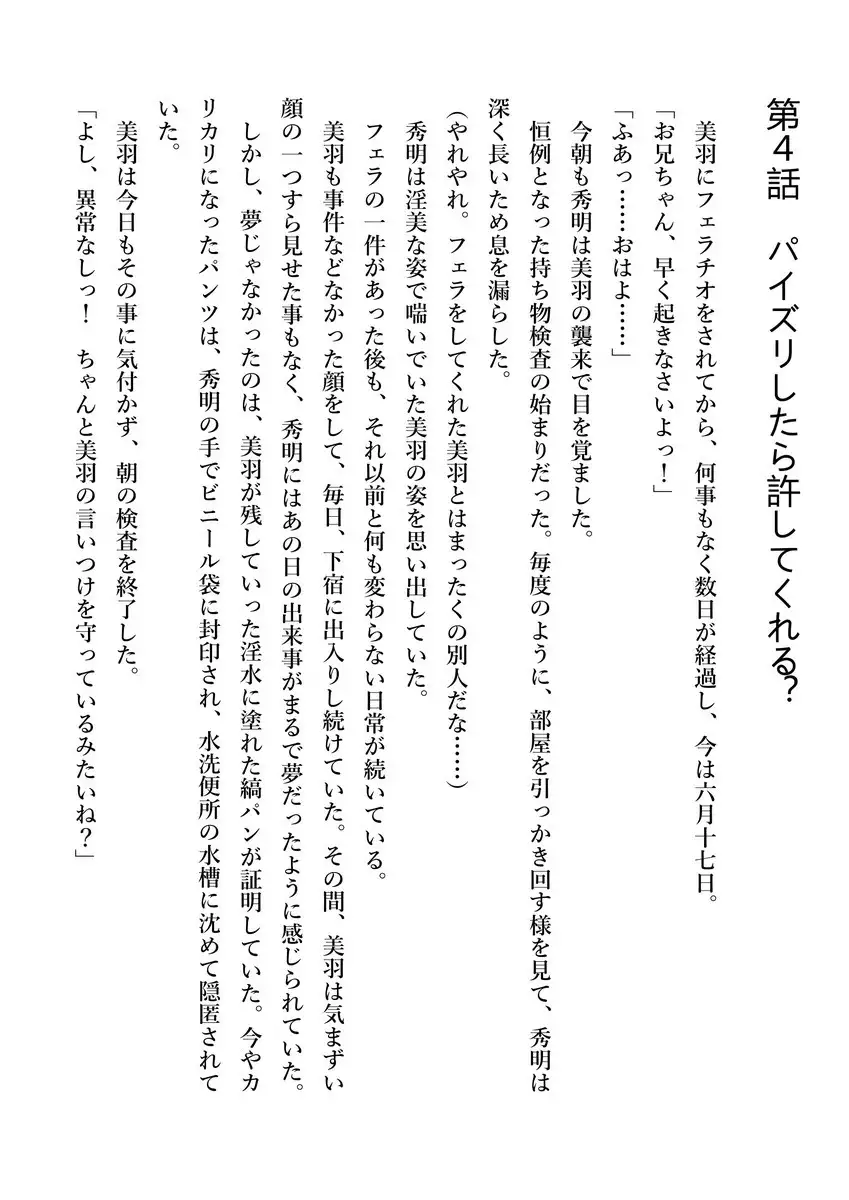 第4話　パイズリしたら許してくれる?
美羽にフェラチオをされてから、何事もなく数日が経過し、今は六月十七日。
「お兄ちゃん、早く起きなさいよっ！」
「ふあっ……おはよ……」
今朝も秀明は美羽の襲来で目を覚ました。
恒例となった持ち物検査の始まりだった。毎度のように、部屋を引っかき回す様を見て、秀明は
深く長いため息を漏らした。
(やれやれ。フェラをしてくれた美羽とはまったくの別人だな……)
秀明は淫美な姿で喘いでいた美羽の姿を思い出していた。
フェラの一件があった後も、それ以前と何も変わらない日常が続いている。
美羽も事件などなかった顔をして、毎日、下宿に出入りし続けていた。その間、美羽は気まずい
顔の一つすら見せた事もなく、秀明にはあの日の出来事がまるで夢だったように感じられていた。
しかし、夢じゃなかったのは、美羽が残していった淫水に塗れた縞パンが証明していた。今やカ
リカリになったパンツは、秀明の手でビニール袋に封印され、水洗便所の水槽に沈めて隠匿されて
いた。
美羽は今日もその事に気付かず、朝の検査を終了した。
「よし、異常なしっ！　ちゃんと美羽の言いつけを守っているみたいね？」